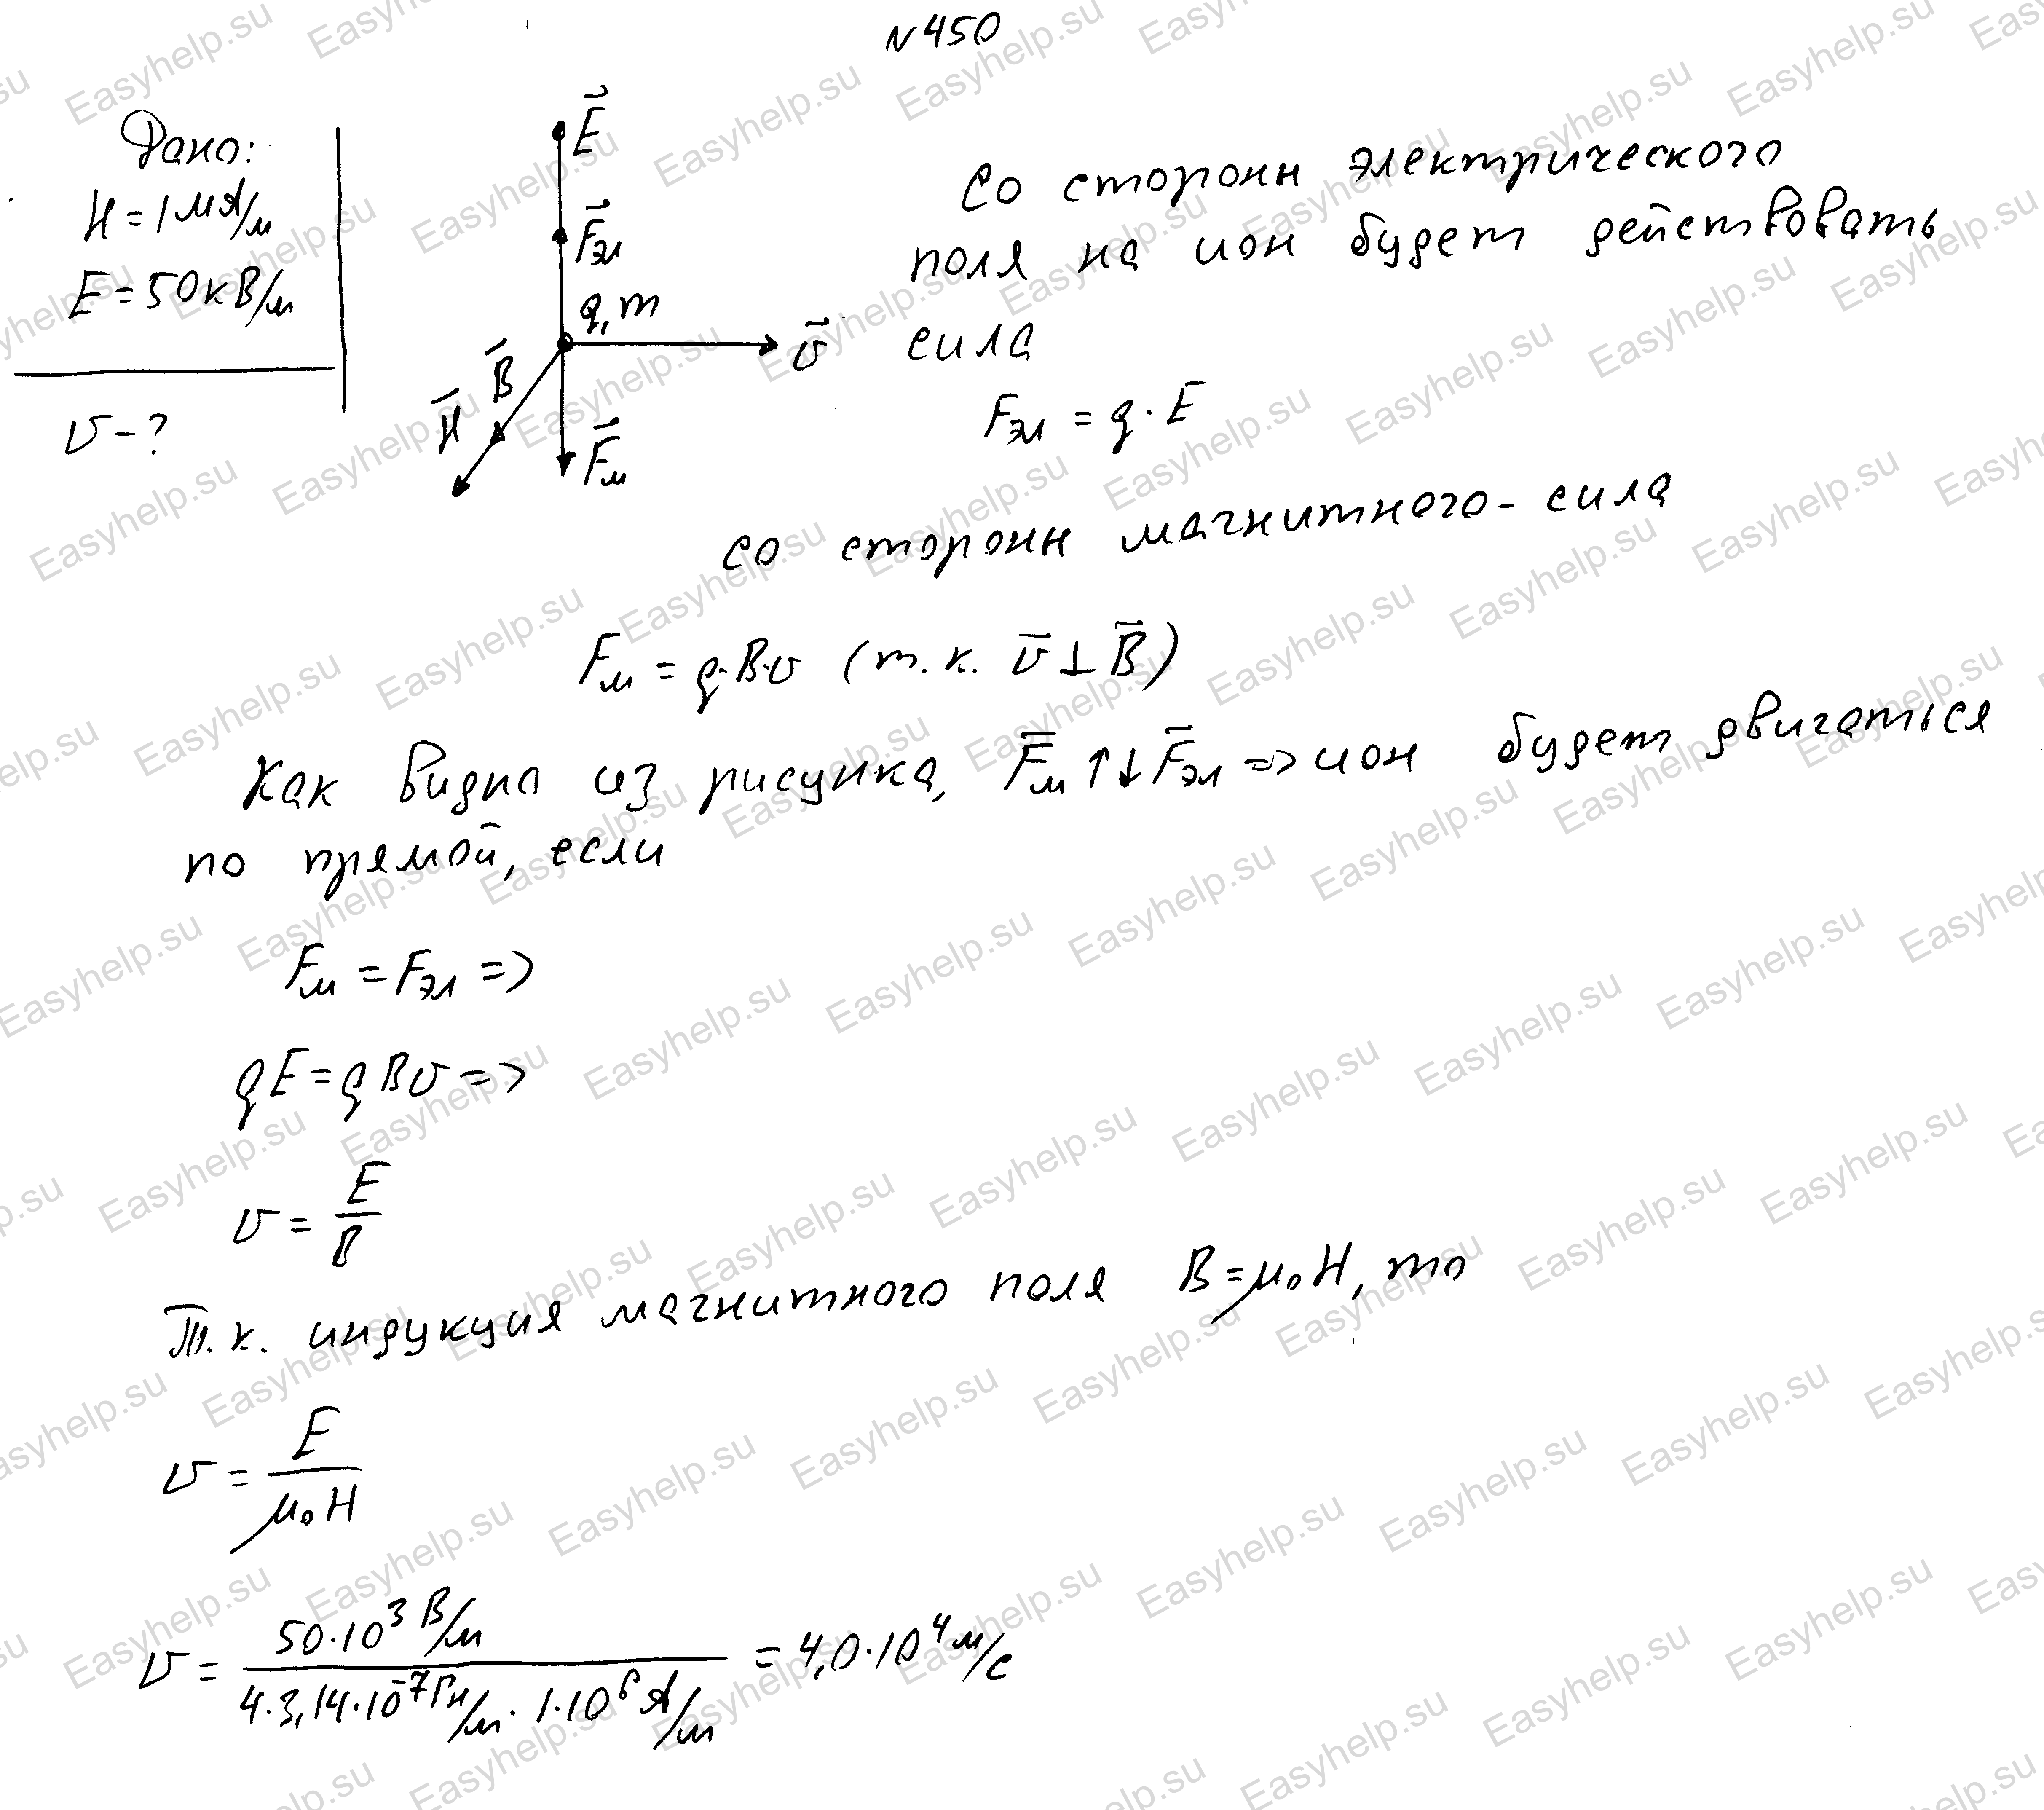 №450
Дано:
H = 1 МА/м
E = 50 кВ/м
υ - ?
E
Fэл
q, m
υ
B
H
Fм
Со стороны электрического
поля на ион будет действовать
сила
Fэл = q · E
со стороны магнитного - сила
Fм = q·B·υ (т.к. υ ⊥ B)
Как видно из рисунка, Fм ↑↓ Fэл => ион будет двигаться
по прямой, если
Fм = Fэл =>
qE = qBυ =>
υ = E/B
Т.к. индукция магнитного поля B = μ₀H, то
υ = E/μ₀H
υ = 50·10³ В/м / 4·3,14·10⁻⁷ Гн/м · 1·10⁶ А/м = 4,0·10⁴ м/с
Easyhelp.su